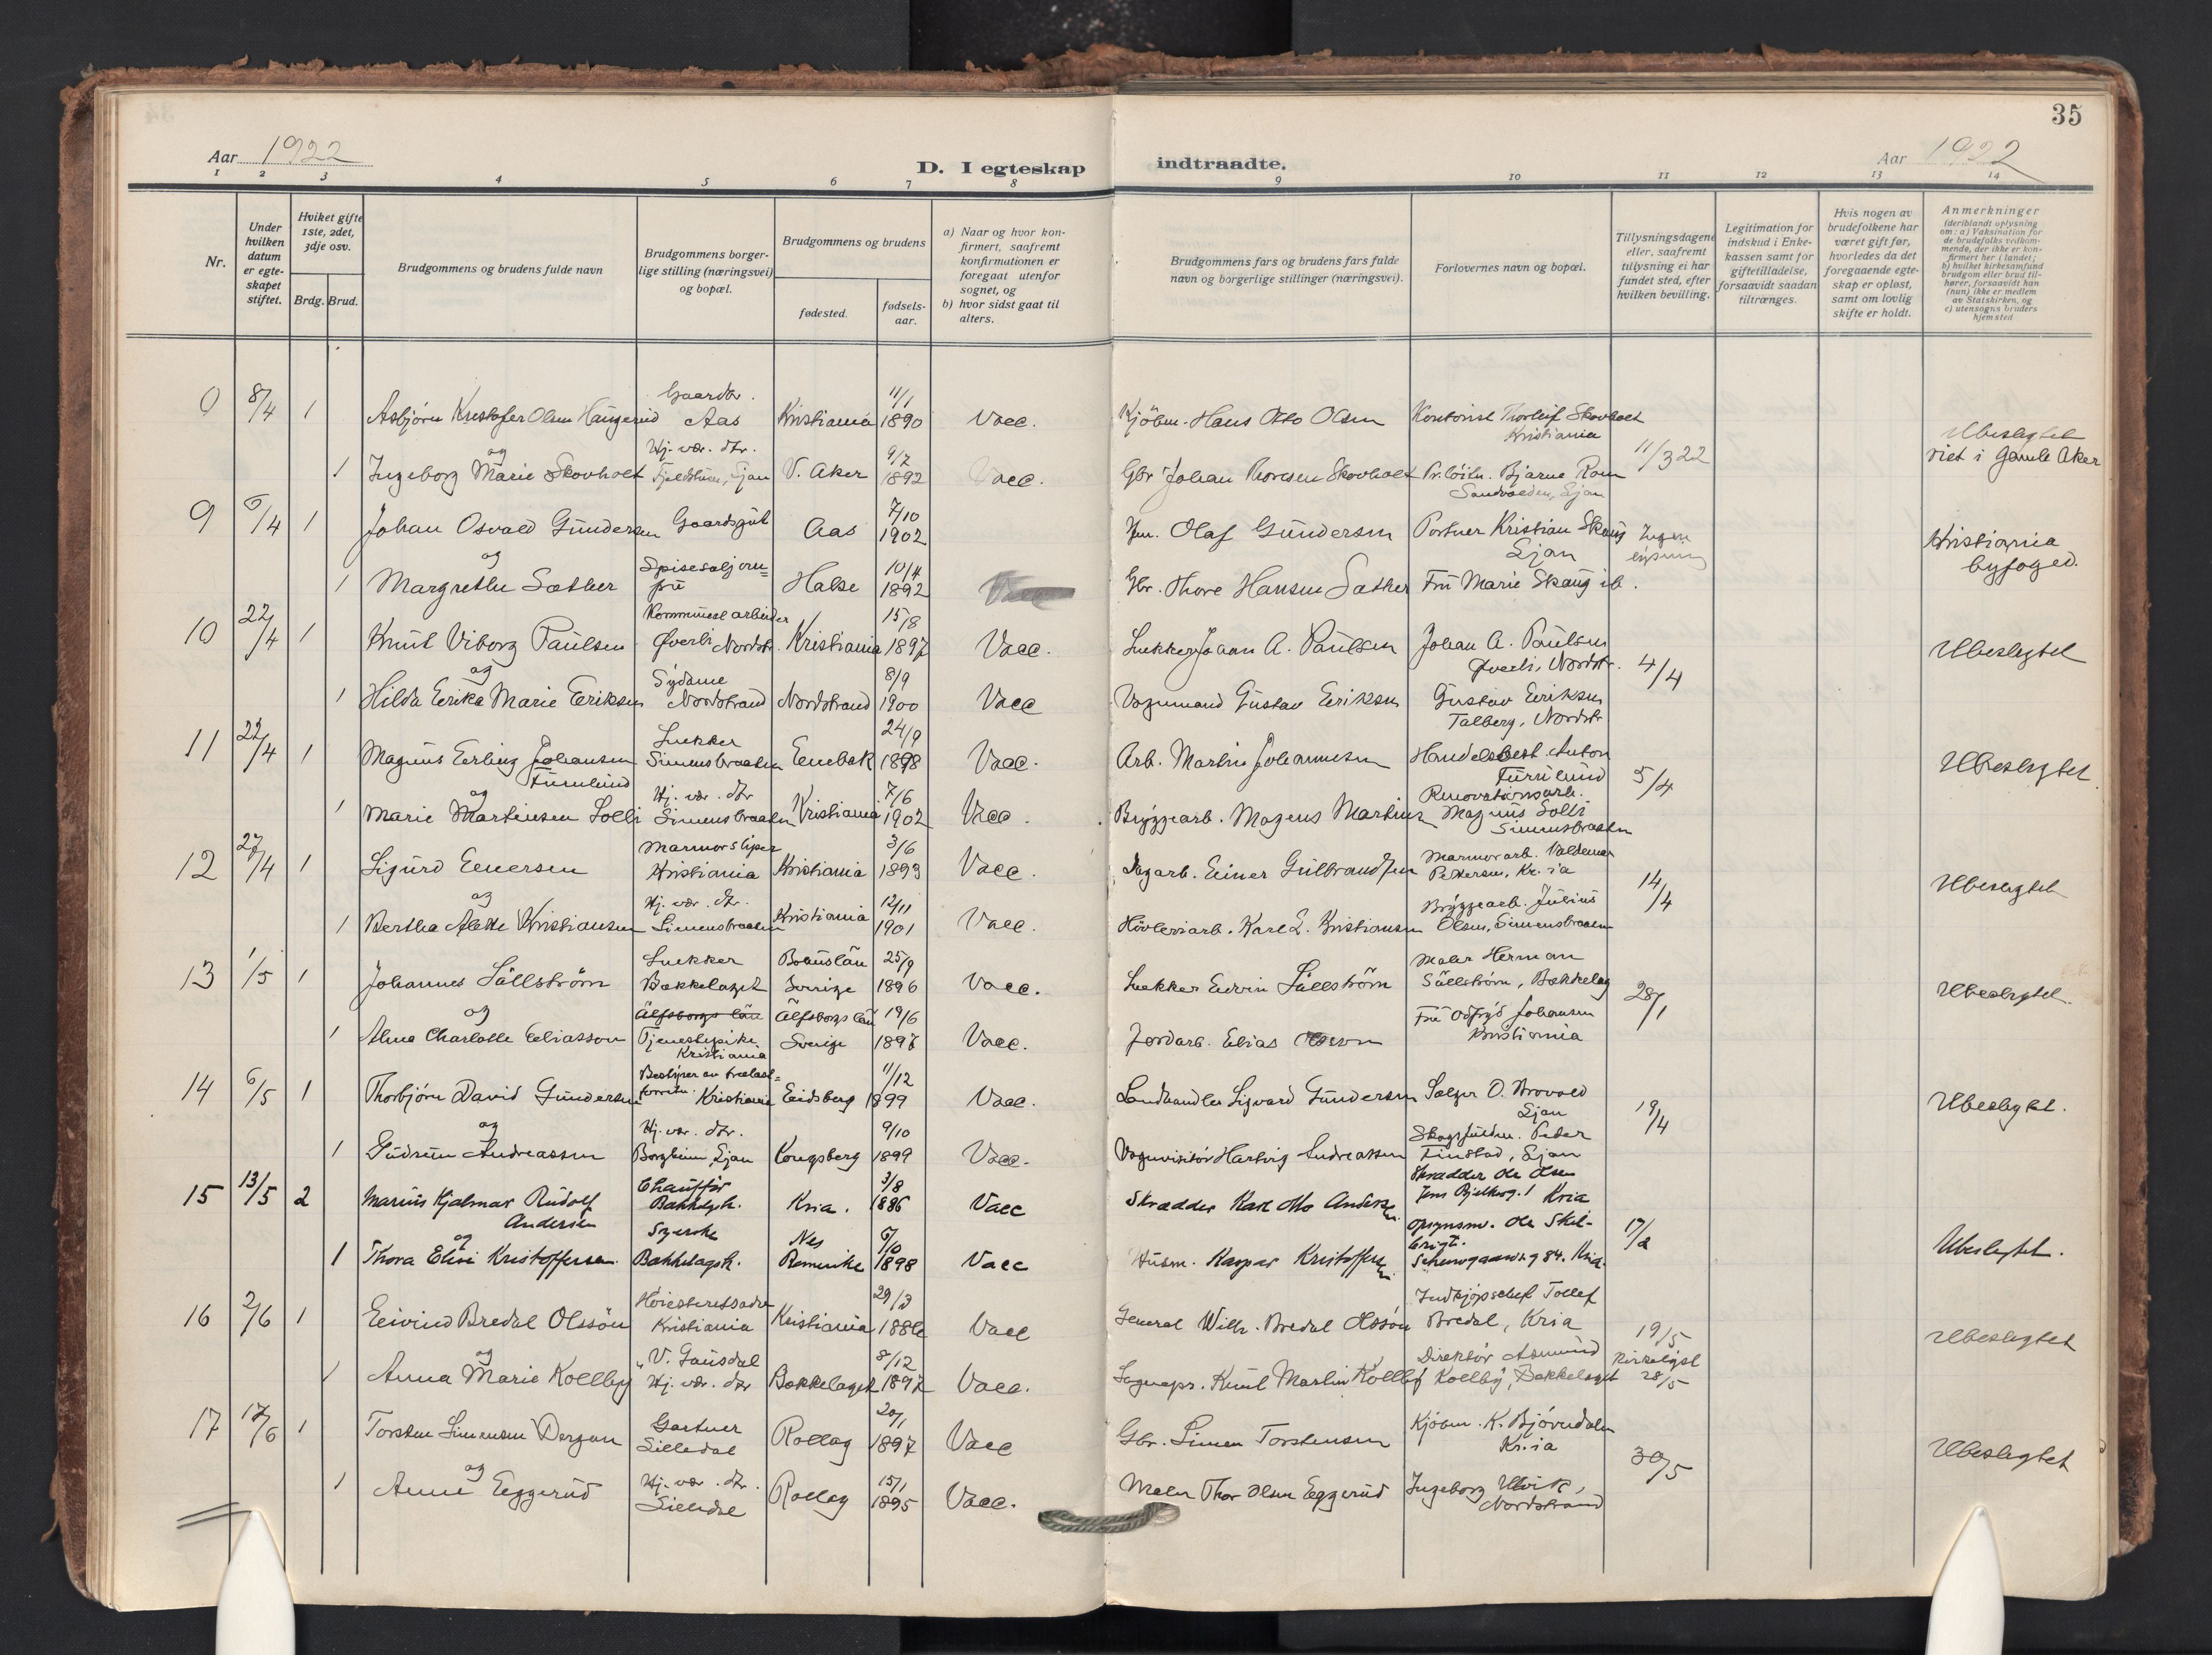 35
Aar 1922
D. I egteskap indtraadte.
Aar 1922
1 2 3 4 5 6 7 8 9 10 11 12 13 14
Nr.
Under hvilken datum er egteskapet stiftet.
Hviket gifte 1ste, 2det, 3dje osv.
Brdg. Brud.
Brudgommens og brudens fulde navn
Brudgommens borgerlige stilling (næringsvei) og bopæl.
Brudgommens og brudens
fødested.
fødselsaar.
a) Naar og hvor konfirmert, saafremt konfirmationen er foregaat utenfor sognet, og
b) hvor sidst gaat til alters.
Brudgommens fars og brudens fars fulde navn og borgerlige stillinger (næringsvei).
Forlovernes navn og bopæl.
Tillysningsdagene eller, saafremt tillysning ei har fundet sted, efter hvilken bevilling.
Legitimation for indskud i Enkekassen samt for giftetilladelse, forsaavidt saadan tiltrænges.
Hvis nogen av brudefolkene har været gift før, hvorledes da det foregaaende egteskap er opløst, samt om lovlig skifte er holdt.
Anmerkninger
(deriblandt oplysning om: a) Vaksination for de brudefolks vedkommende, der ikke er konfirmert her i landet; b) hvilket kirkesamfund brudgom eller brud tilhører, forsaavidt han (hun) ikke er medlem av Statskirken, og c) utensogns bruders hjemsted
8/4 1 Asbjørn Kristofer Olsen Haugerud Gaardbr. Aas Kristiania 11/1 1890 Vacc. Kjöbm. Hans Otto Olsen Kontorist Thorleif Skovholt Kristiania
og
1 Ingeborg Marie Skovholt Hj. vær. dtr. Ljan V. Aker 9/7 1892 Vacc. Gbr Johan Thoresen Skovholt Bjarne Ljan 11/3 22 Ubeslegtet viet i Gamle Aker
9 6/4 1 Johan Osvald Gundersen Gaardsgut Aas 7/10 1902 Olaf Gundersen Portner Kristian Skaug Ljan Ingen lysning Kristiania byfoged.
og
1 Margrethe Sæther Halse 10/4 1892 Vacc Gbr. Thore Hansen Sæther Fru Marie Skaug ib.
10 22/4 1 Knut Viborg Paulsen Kommunearbeider Øverli Nordstr. Kristiania 15/8 1897 Vacc. Snekker Johan A. Paulsen Johan A. Paulsen Øverli, Nordstr. 4/4 Ubeslegtet
og
1 Hilda Erika Marie Eriksen Sydame Nordstrand Nordstrand 8/9 1900 Vacc Vognmand Gustav Eriksen Gustav Eriksen Talberg, Nordstr
11 22/4 1 Magnus Erling Johansen Furulund Snekker Simensbraaten Enebak 24/9 1898 Vacc. Arb. Martin Johannesen Handelsbest. Anton Furulund 5/4 Ubeslegtet
og
1 Marie Martinsen Solli Hj. vær. dtr Simensbraaten Kristiania 7/6 1902 Vacc. Bryggearb. Magnus Martinsen Renovationsarb. Magnus Solli Simensbraaten
12 27/4 1 Sigurd Enersen Marmorsliper Kristiania Kristiania 3/6 1893 Vacc. Dagarb. Einer Gulbrandsen Marmorarb. Valdemar Pettersen, Kr.ia 14/4 Ubeslegtet
og
1 Bertha Alette Kristiansen Hj. vær. dtr. Simensbraaten Kristiania 12/11 1901 Vacc. Høvleriarb. Karl L. Kristiansen Bryggearb. Julius Olsen, Simensbraaten
13 1/5 1 Johannes Sällström Snekker Bækkelaget Bohuslän Sverige 25/9 1896 Vacc. Snekker Edvin Sällström Maler Herman Sällström, Bækkelag 28/1 Ubeslegtet.
og
1 Alma Charlotte Eliasson Älfsborgs län Tjenestepike Kristiania Älfsborgs län Sverige 19/6 1897 Vacc. Jordarb. Elias Fru Johansen Kristiania
14 6/5 1 Thorbjørn David Gundersen Bestyrer av Kristiania Eidsberg 11/12 1899 Vacc. Landhandler Sigvard Gundersen Sælger O. Brovold Ljan 19/4 Ubeslegtet.
og
1 Gudrun Andreassen Hj. vær. dtr. Borgheim, Ljan Kongsberg 9/10 1899 Vacc. Vognvisitör Hartvig Andreassen Peder Finstad, Ljan
15 13/5 2 Marius Hjalmar Rudolf Andersen Chauffør Bækkelagsh. Kria. 3/8 1886 Vacc Skrædder Karl Otto Andersen Skrædder Ole Olsen Jens Bjelkesg. 1 Kria 17/2 Ubeslegtet.
og
1 Thora Elise Kristoffersen Syerske Bækkelagsh. Nes Romerike 1898 Vacc Husm. Kaspar Kristoffersen Opsynsm. Ole 84. Kria.
16 2/6 1 Eivind Bredal Olssøn Høiesteretsadv Kristiania Kristiania 29/3 Vacc General Wilh. Bredal Olssøn Indkjøpschef Tollef Bredal, Kria 19/5 Ubeslegtet
og
1 Anna Marie Kollby V. Gausdal Hj. vær. dtr Bækkelaget 8/12 1897 Vacc. Sognepr. Knut Martin Kollby Direktør Asmund Kollby, Bækkelaget kirkelyst 28/5
17 17/6 1 Torsten Simensen Gartner Lilledal Rollag 20/1 1897 Vacc Gbr. Simen Torstensen Kjöbm. K. Bjørndalen Kr.ia 30/5 Ubeslegtet
og
1 Anne Eggerud Hj. vær. dtr. Lilledal Rollag 15/1 1895 Vacc. Maler Thor Olsen Eggerud Ingeborg Ulvik, Nordstrand